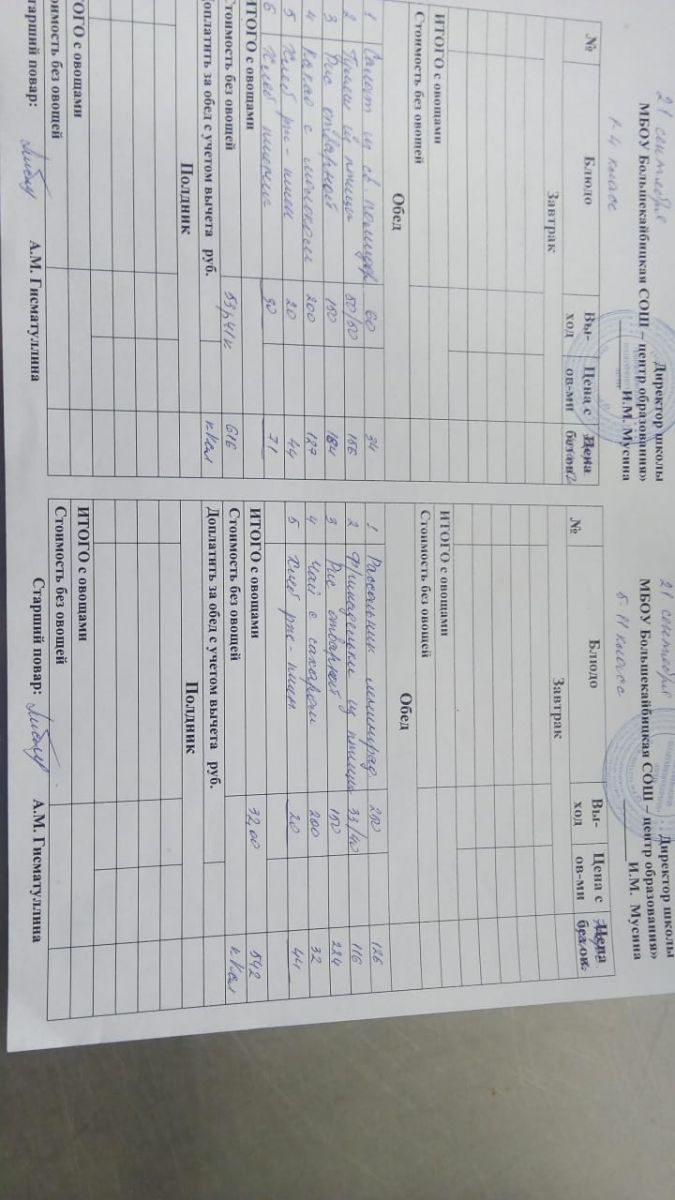 21 сентября
Директор школы
МБОУ Большекайбицкая СОШ – центр образования»
И.М. Мусина
1-4 класс
№ Блюдо Вы-ход Цена с ов-ми
Завтрак
ИТОГО с овощами
Стоимость без овощей
Обед
1 Салат из св помидор 60 34
2 Гуляш из птицы 50/50 156
3 Рис отварной 150 184
4 Какао с молоком 200 127
5 Хлеб рж-пшен 20 44
6 Хлеб пшенич 30 71
ИТОГО с овощами
Стоимость без овощей 53р41к 616
Доплатить за обед с учетом вычета руб. кКал
Полдник
ИТОГО с овощами
Стоимость без овощей
Старший повар: А.М. Гисматуллина
21 сентября
Директор школы
МБОУ Большекайбицкая СОШ – центр образования»
И.М. Мусина
5-11 класс
№ Блюдо Вы-ход Цена с ов-ми Цена без ов.
Завтрак
ИТОГО с овощами
Стоимость без овощей
Обед
1 Рассольник ленинград 250 126
2 Фрикадельки из птицы 116
3 Рис отварной 150 224
4 Чай с сахаром 200 32
5 Хлеб рж-пшен 20 44
ИТОГО с овощами 32,00 542
Стоимость без овощей кКал
Доплатить за обед с учетом вычета руб.
Полдник
ИТОГО с овощами
Стоимость без овощей
Старший повар: А.М. Гисматуллина